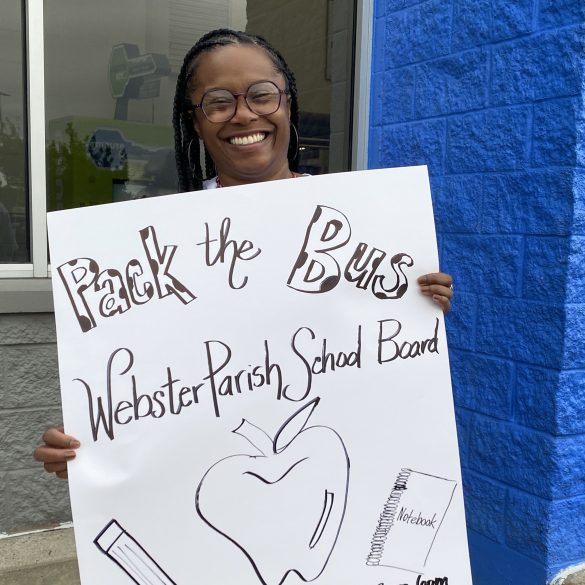 Pack the Bus
Webster Parish School Board
Notebook